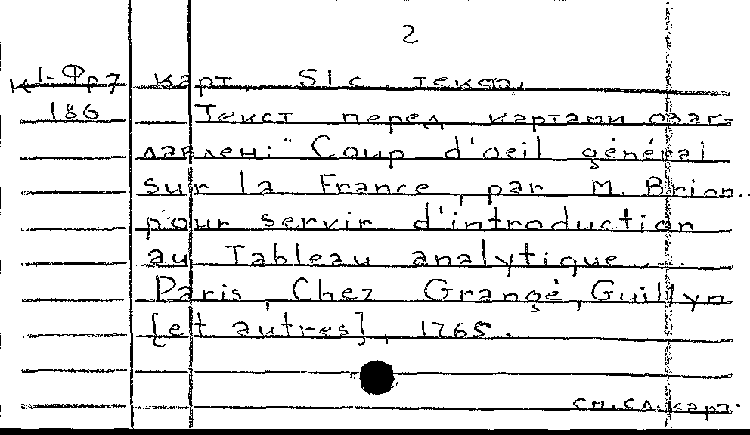 2
К 1-Фр7 карт, 51 с. текста.
186 Текст перед картами озаг-
лавлен: "Coup d'oeil général
sur la France, par M. Brion..
pour servir d'introduction
au Tableau analytique ...
Paris, Chez Grangé, Guillyn
[et autres], 1765.
см.сл.карт.